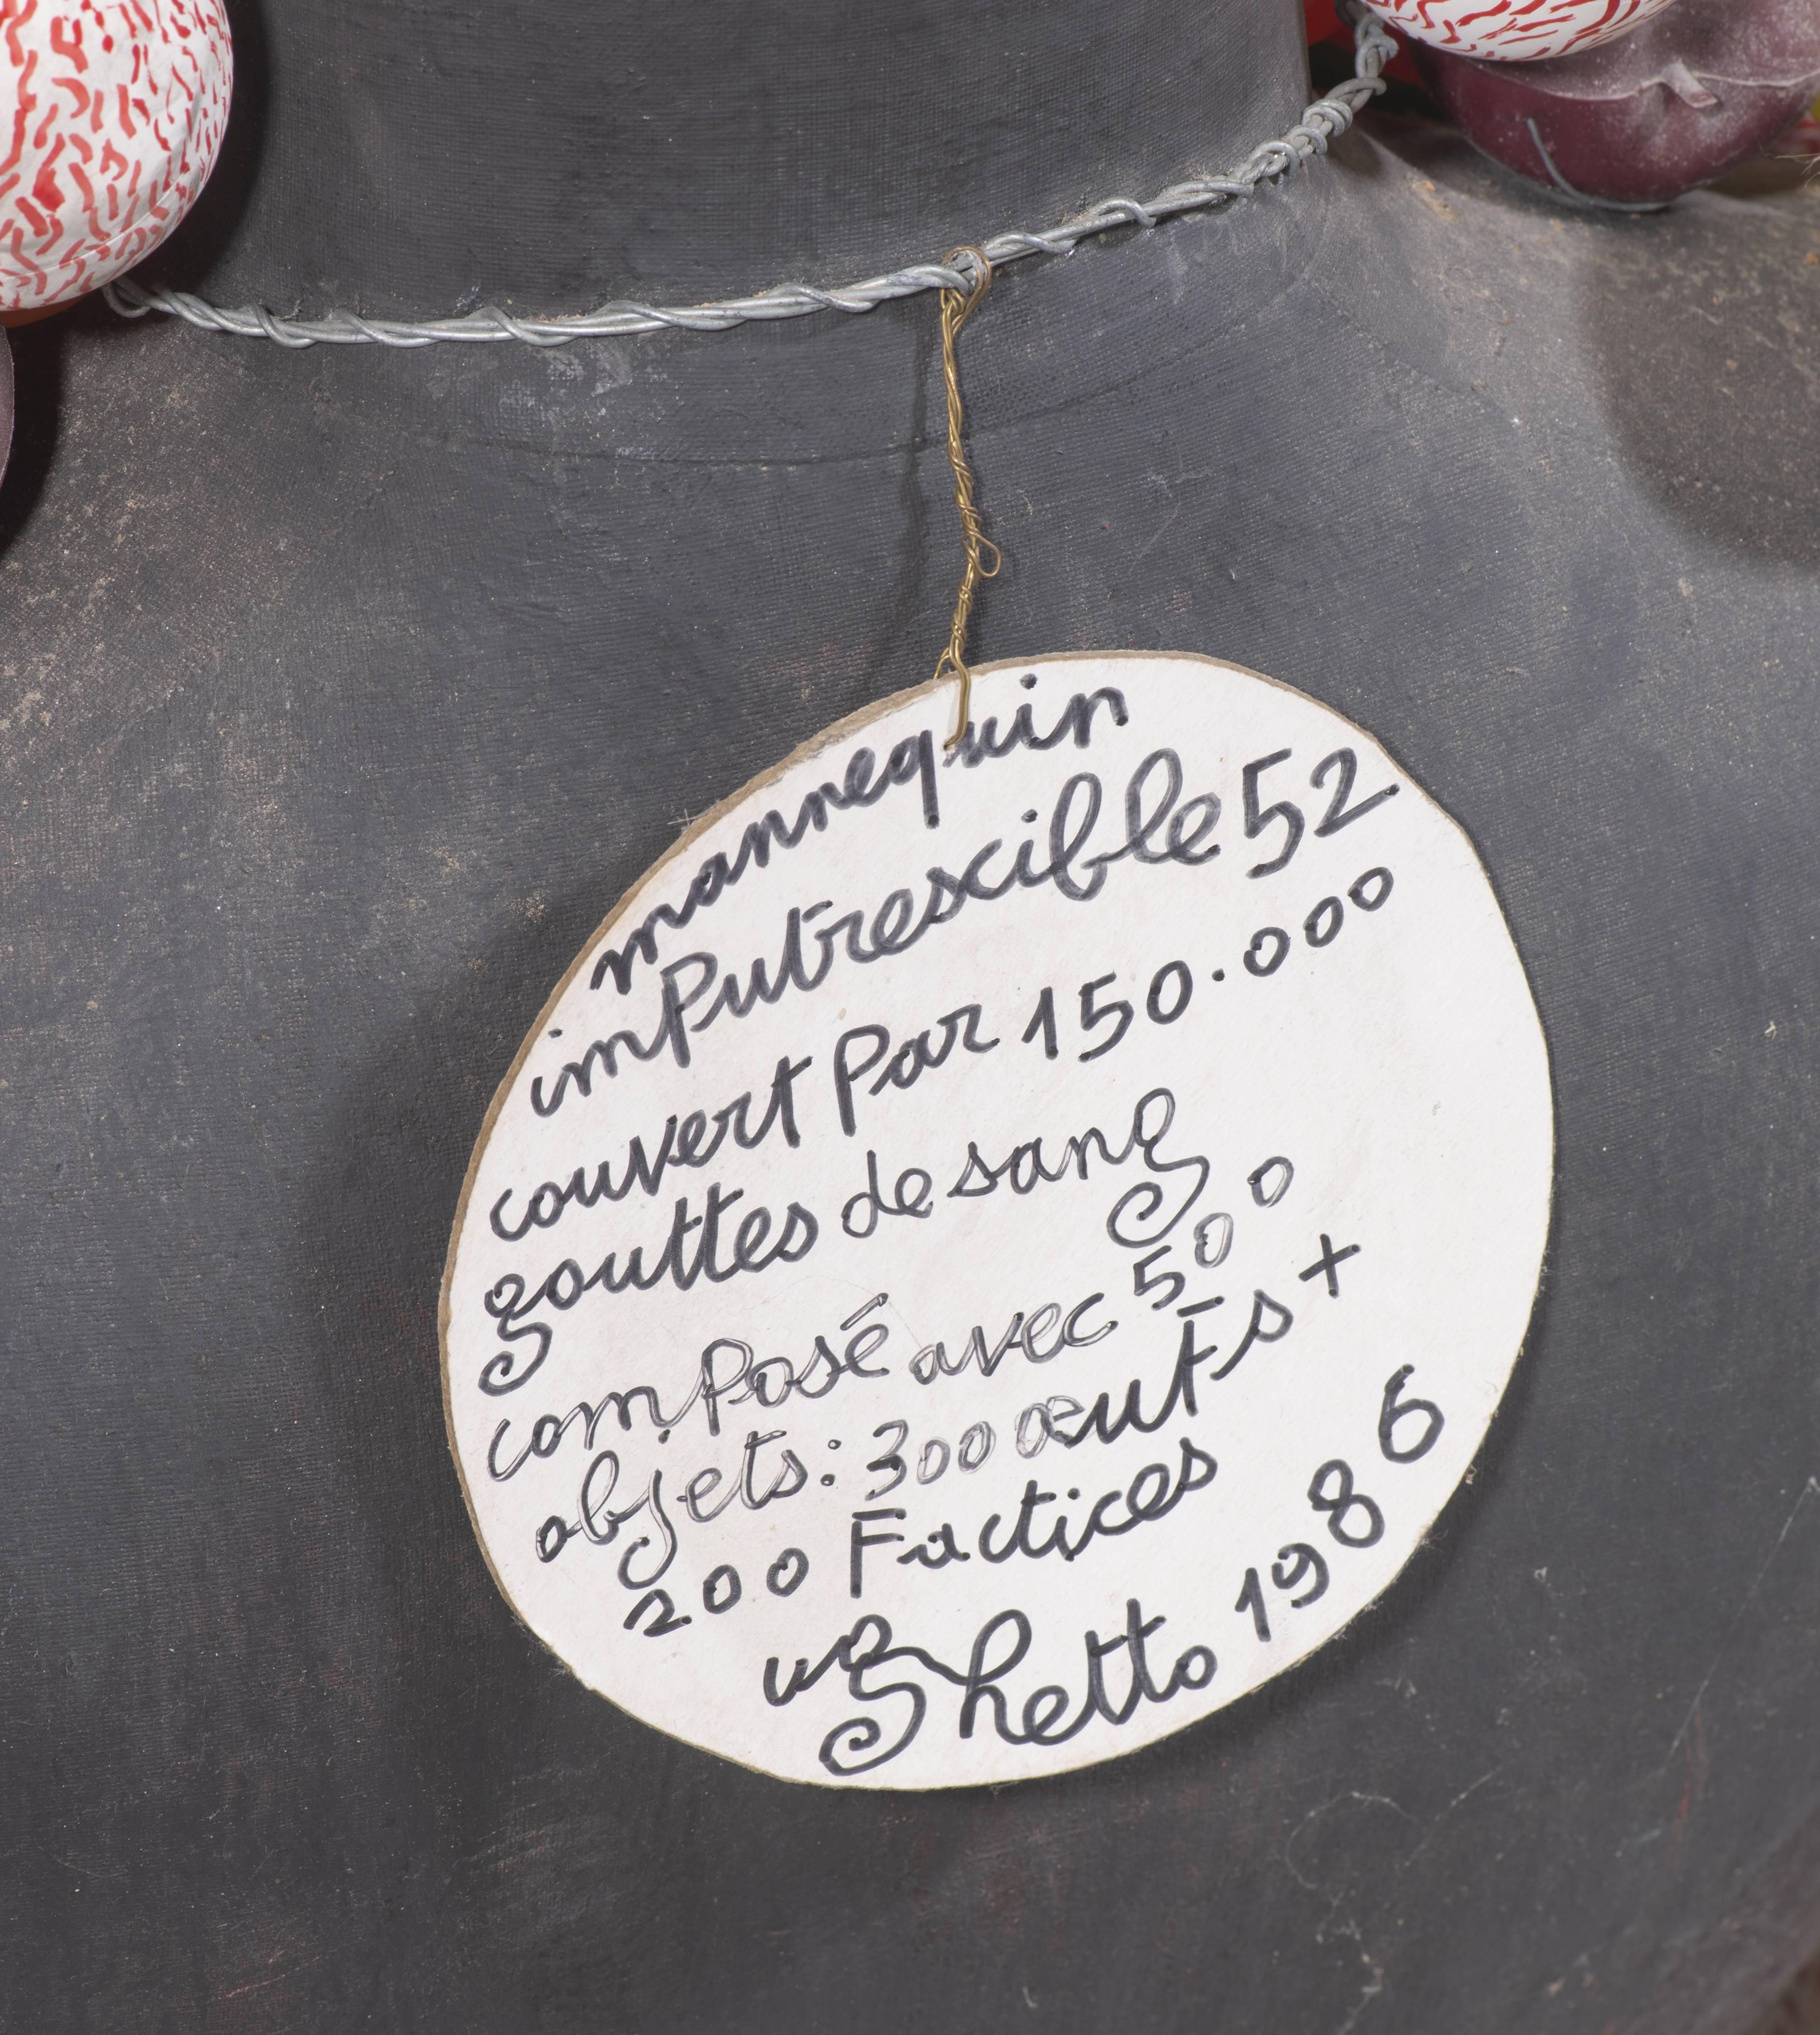 mannequin
imputrescible 52
couvert par 150.000
gouttes de sang
composé avec 500
objets: 300 œufs +
200 Factices
ughetto 1986